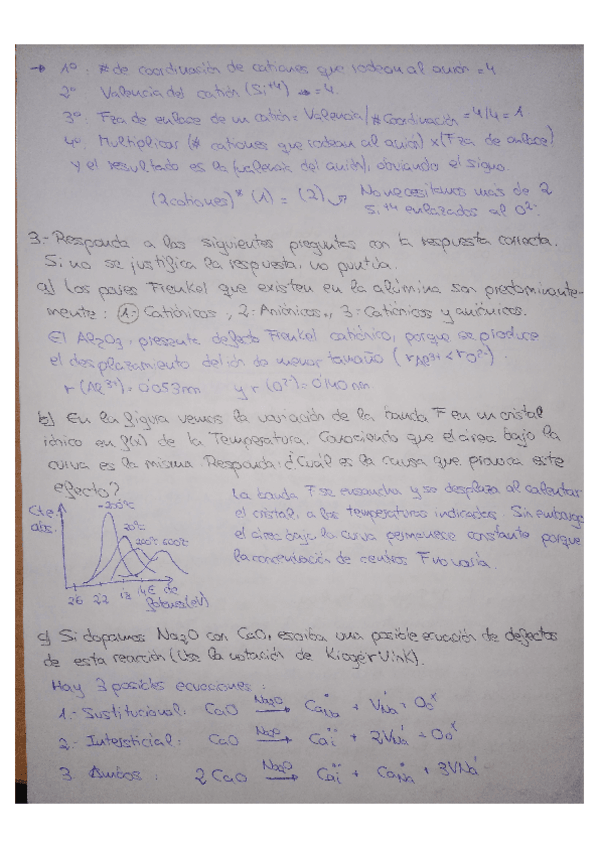 → 1º: # de coordinación de cationes que rodean al anión = 4
2º Valencia del catión (Si⁺⁴) → = 4.
3º: Fza de enlace de un catión = Valencia/# Coordinación = 4/4 = 1.
4º: Multiplicar (# cationes que rodean al anión) x (Fza de enlace)
y el resultado es la (valencia del anión), obviando el signo.
(2 cationes)* (1) = (2) → No necesitamos más de 2
Si⁺⁴ enlazados al O²⁻.
3.- Responda a las siguientes preguntas con la respuesta correcta.
Si no se justifica la respuesta, no puntúa.
a) Los pares Frenkel que existen en la alúmina son predominante-
mente: 1.- Catiónicos, 2.- Aniónicos., 3.- Catiónicos y aniónicos.
El Al₂O₃ presenta defecto Frenkel catiónico, porque se produce
el desplazamiento del ión de menor tamaño (rAl³⁺ < rO²⁻).
r (Al³⁺) = 0'053 nm y r (O²⁻) = 0'140 nm.
b) En la figura vemos la variación de la banda F en un cristal
iónico en f(x) de la Temperatura. Conociendo que el área bajo la
curva es la misma. Responda: ¿Cuál es la causa que provoca este
efecto?
La banda F se ensancha y se desplaza al calentar
el cristal, a las temperaturas indicadas. Sin embargo
el área bajo la curva permanece constante porque
la concentración de centros F no varía.
Cte
abs.
-250ºC
20ºC
200ºC 600ºC
26 22 18 14 E de
fotones (eV)
c) Si dopamos Na₂O con CaO, escriba una posible ecuación de defectos
de esta reacción (Use la notación de Kröger Vink).
Hay 3 posibles ecuaciones:
1.- Sustitucional: CaO —Na₂O→ Ca•Na + V'Na + OoX
2.- Intersticial: CaO —Na₂O→ Ca••i + 2V'Na + OoX
3 Ambos: 2 CaO —Na₂O→ Ca••i + Ca•Na + 3V'Na